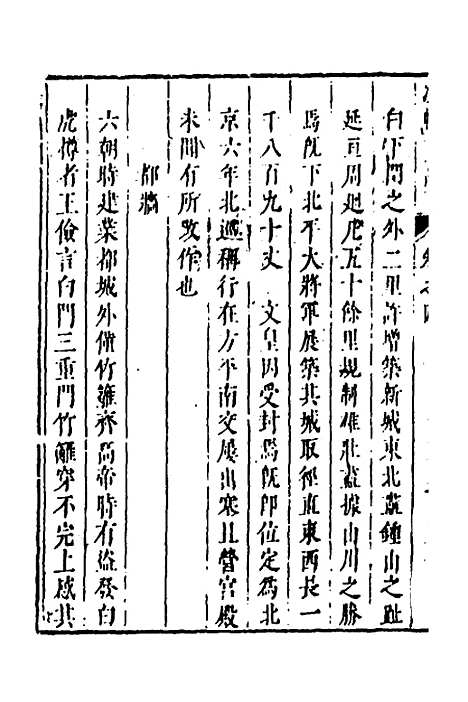 白下門之外二里許增築新城東北盡鍾山之趾
延亘周廻凡五十餘里規制雄壯盡據山川之勝
焉旣下北平大將軍展築其城取徑直東西長一
千八百九十丈　文皇因受封焉旣卽位定為北
京六年北巡稱行在方平南交展出塞且營宮殿
未間有所改作也
都牆
六朝時建業都城外僅竹籬齊高帝時有盜發白
虎樽者王儉言白門三重門竹籬穿不完上感其